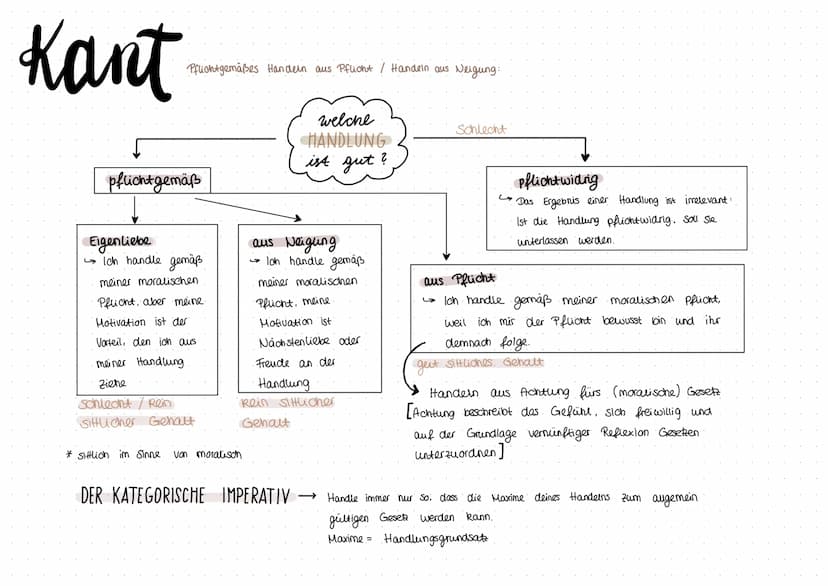 Kant
Pflichtgemäßes Handeln aus Pflicht / Handeln aus Neigung:
welche
HANDLUNG
ist gut?
Schlecht
pflichtgemäß
pflichtwidrig
↳ Das Ergebnis einer Handlung ist irrelevant:
Ist die Handlung pflichtwidrig, soll sie
unterlassen werden.
Eigenliebe
↳ Ich handle gemäß
meiner moralischen
Pflicht, aber meine
Motivation ist der
Vorteil, den ich aus
meiner Handlung
ziehe
schlecht / Kein
sittlicher Gehalt
aus Neigung
↳ Ich handle gemäß
meiner moralischen
Pflicht, meine
Motivation ist
Nächstenliebe oder
Freude an der
Handlung
Kein sittlicher
Gehalt
aus Pflicht
↳ Ich handle gemäß meiner moralischen Pflicht,
weil ich mir der Pflicht bewusst bin und ihr
demnach folge.
gut sittliches Gehalt
Handeln aus Achtung fürs (moralische) Gesetz
[Achtung beschreibt das Gefühl, sich freiwillig und
auf der Grundlage vernünftiger Reflexion Gesetzen
unterzuordnen]
* sittlich im Sinne von moralisch
DER KATEGORISCHE IMPERATIV → Handle immer nur so, dass die Maxime deines Handelns zum allgemein
gültigen Gesetz werden kann.
Maxime = Handlungsgrundsatz